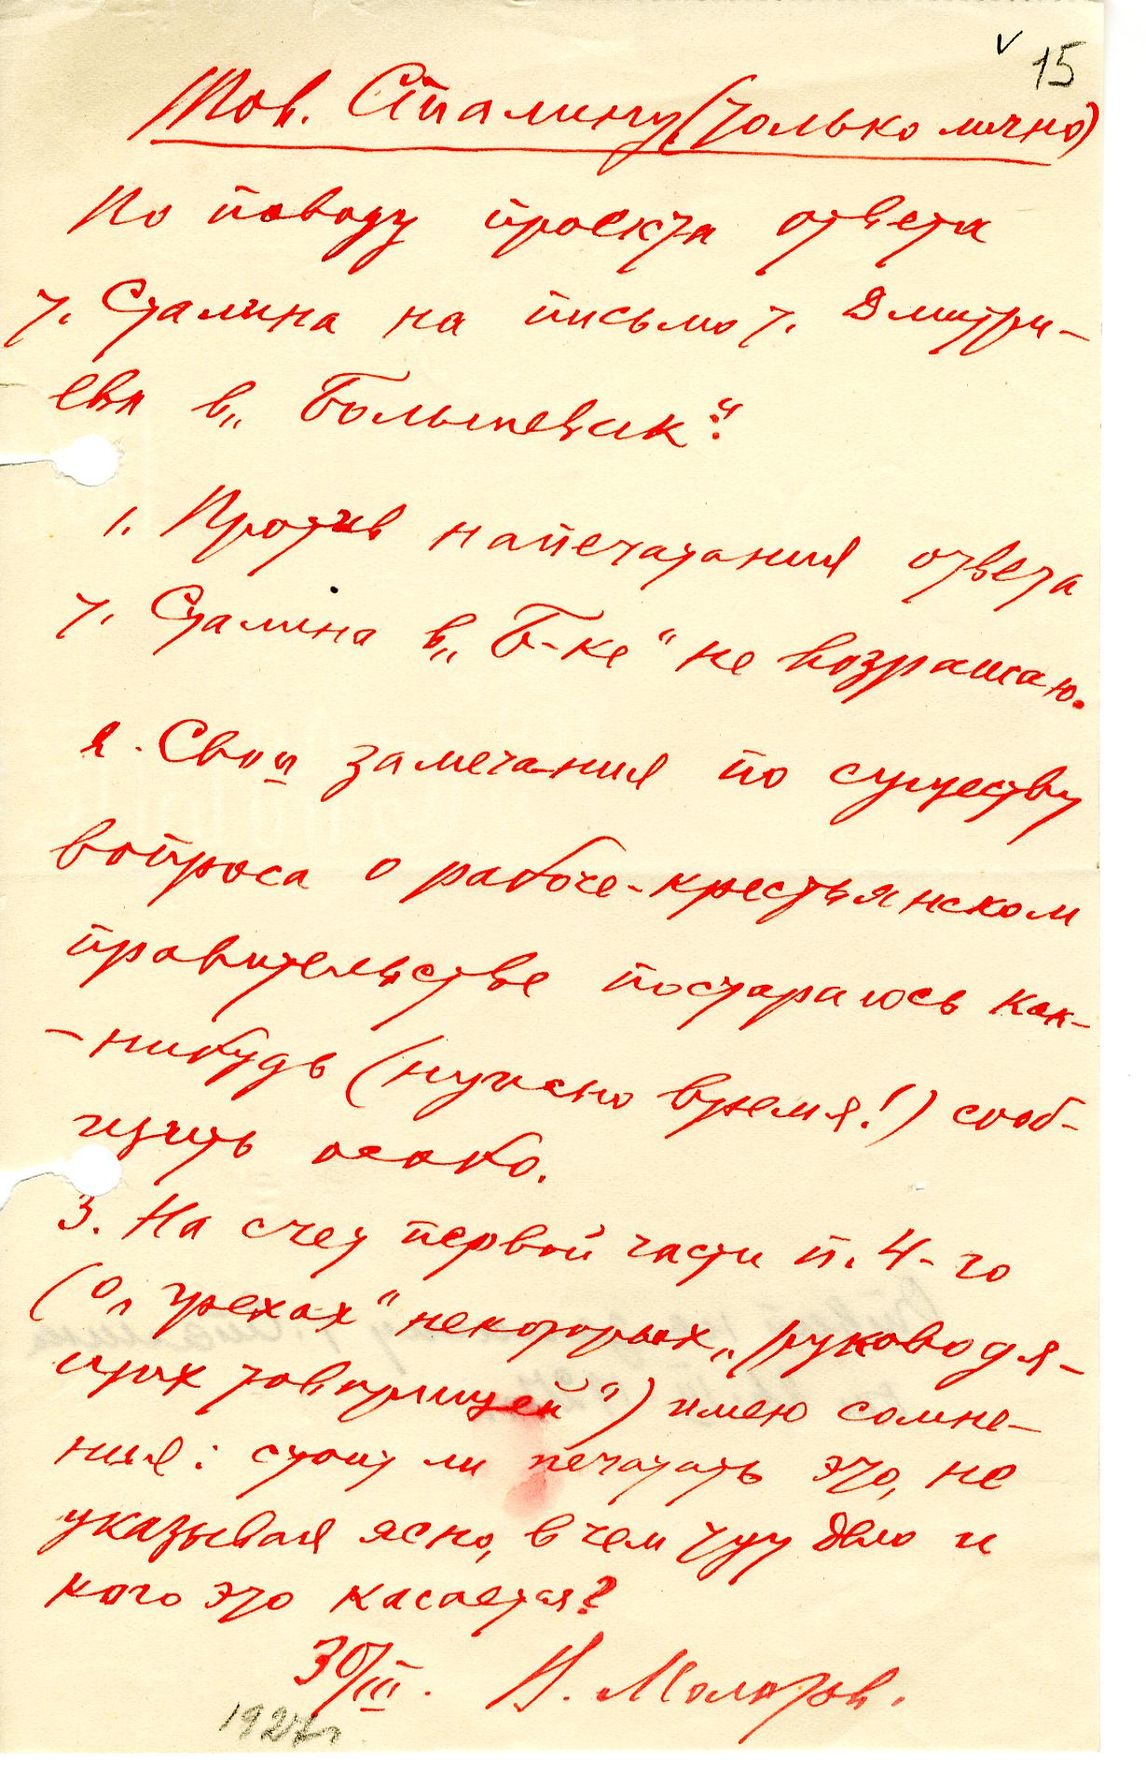 √ 15
Тов. Сталину (только лично)
По поводу проекта ответа
т. Сталина на письмо т. Дмитри-
ева в „Большевик“:
1. Против напечатания ответа
т. Сталина в „Б-ке“ не возражаю.
2. Свои замечания по существу
вопроса о рабоче-крестьянском
правительстве постараюсь как-
-нибудь (нужно время!) сооб-
щить особо.
3. На счет первой части п. 4-го
(о „грехах“ некоторых „руководя-
щих товарищей“) имею сомне-
ния: стоит ли печатать это, не
указывая ясно, в чем тут дело и
кого это касается?
30/III. В. Молотов.
1927 г.